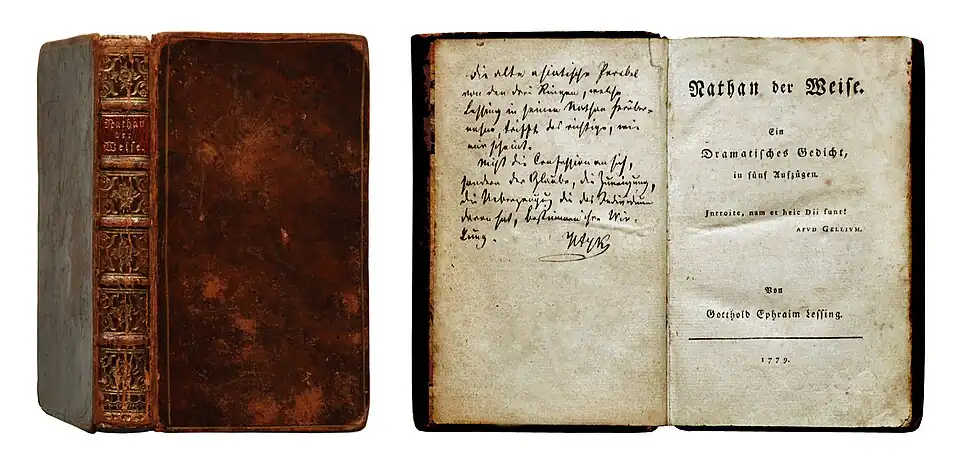 Nathan
der
Weiſe.
Die alte asiatische Parabel
von den drei Ringen, welche
Lessing in seinen Nathan herüber-
nahm, trifft das richtige, wie
mir scheint.
Nicht die Confession an sich,
sondern der Glaube, die Zuneigung,
die Ueberzeugung die das Individuum
daran hat, bestimmen ihre Wir-
kung.
Nathan der Weiſe.
Ein
Dramatiſches Gedicht,
in fünf Aufzügen.
Introite, nam et heic Dii ſunt!
APVD GELLIVM.
Von
Gotthold Ephraim Leſſing.
1779.